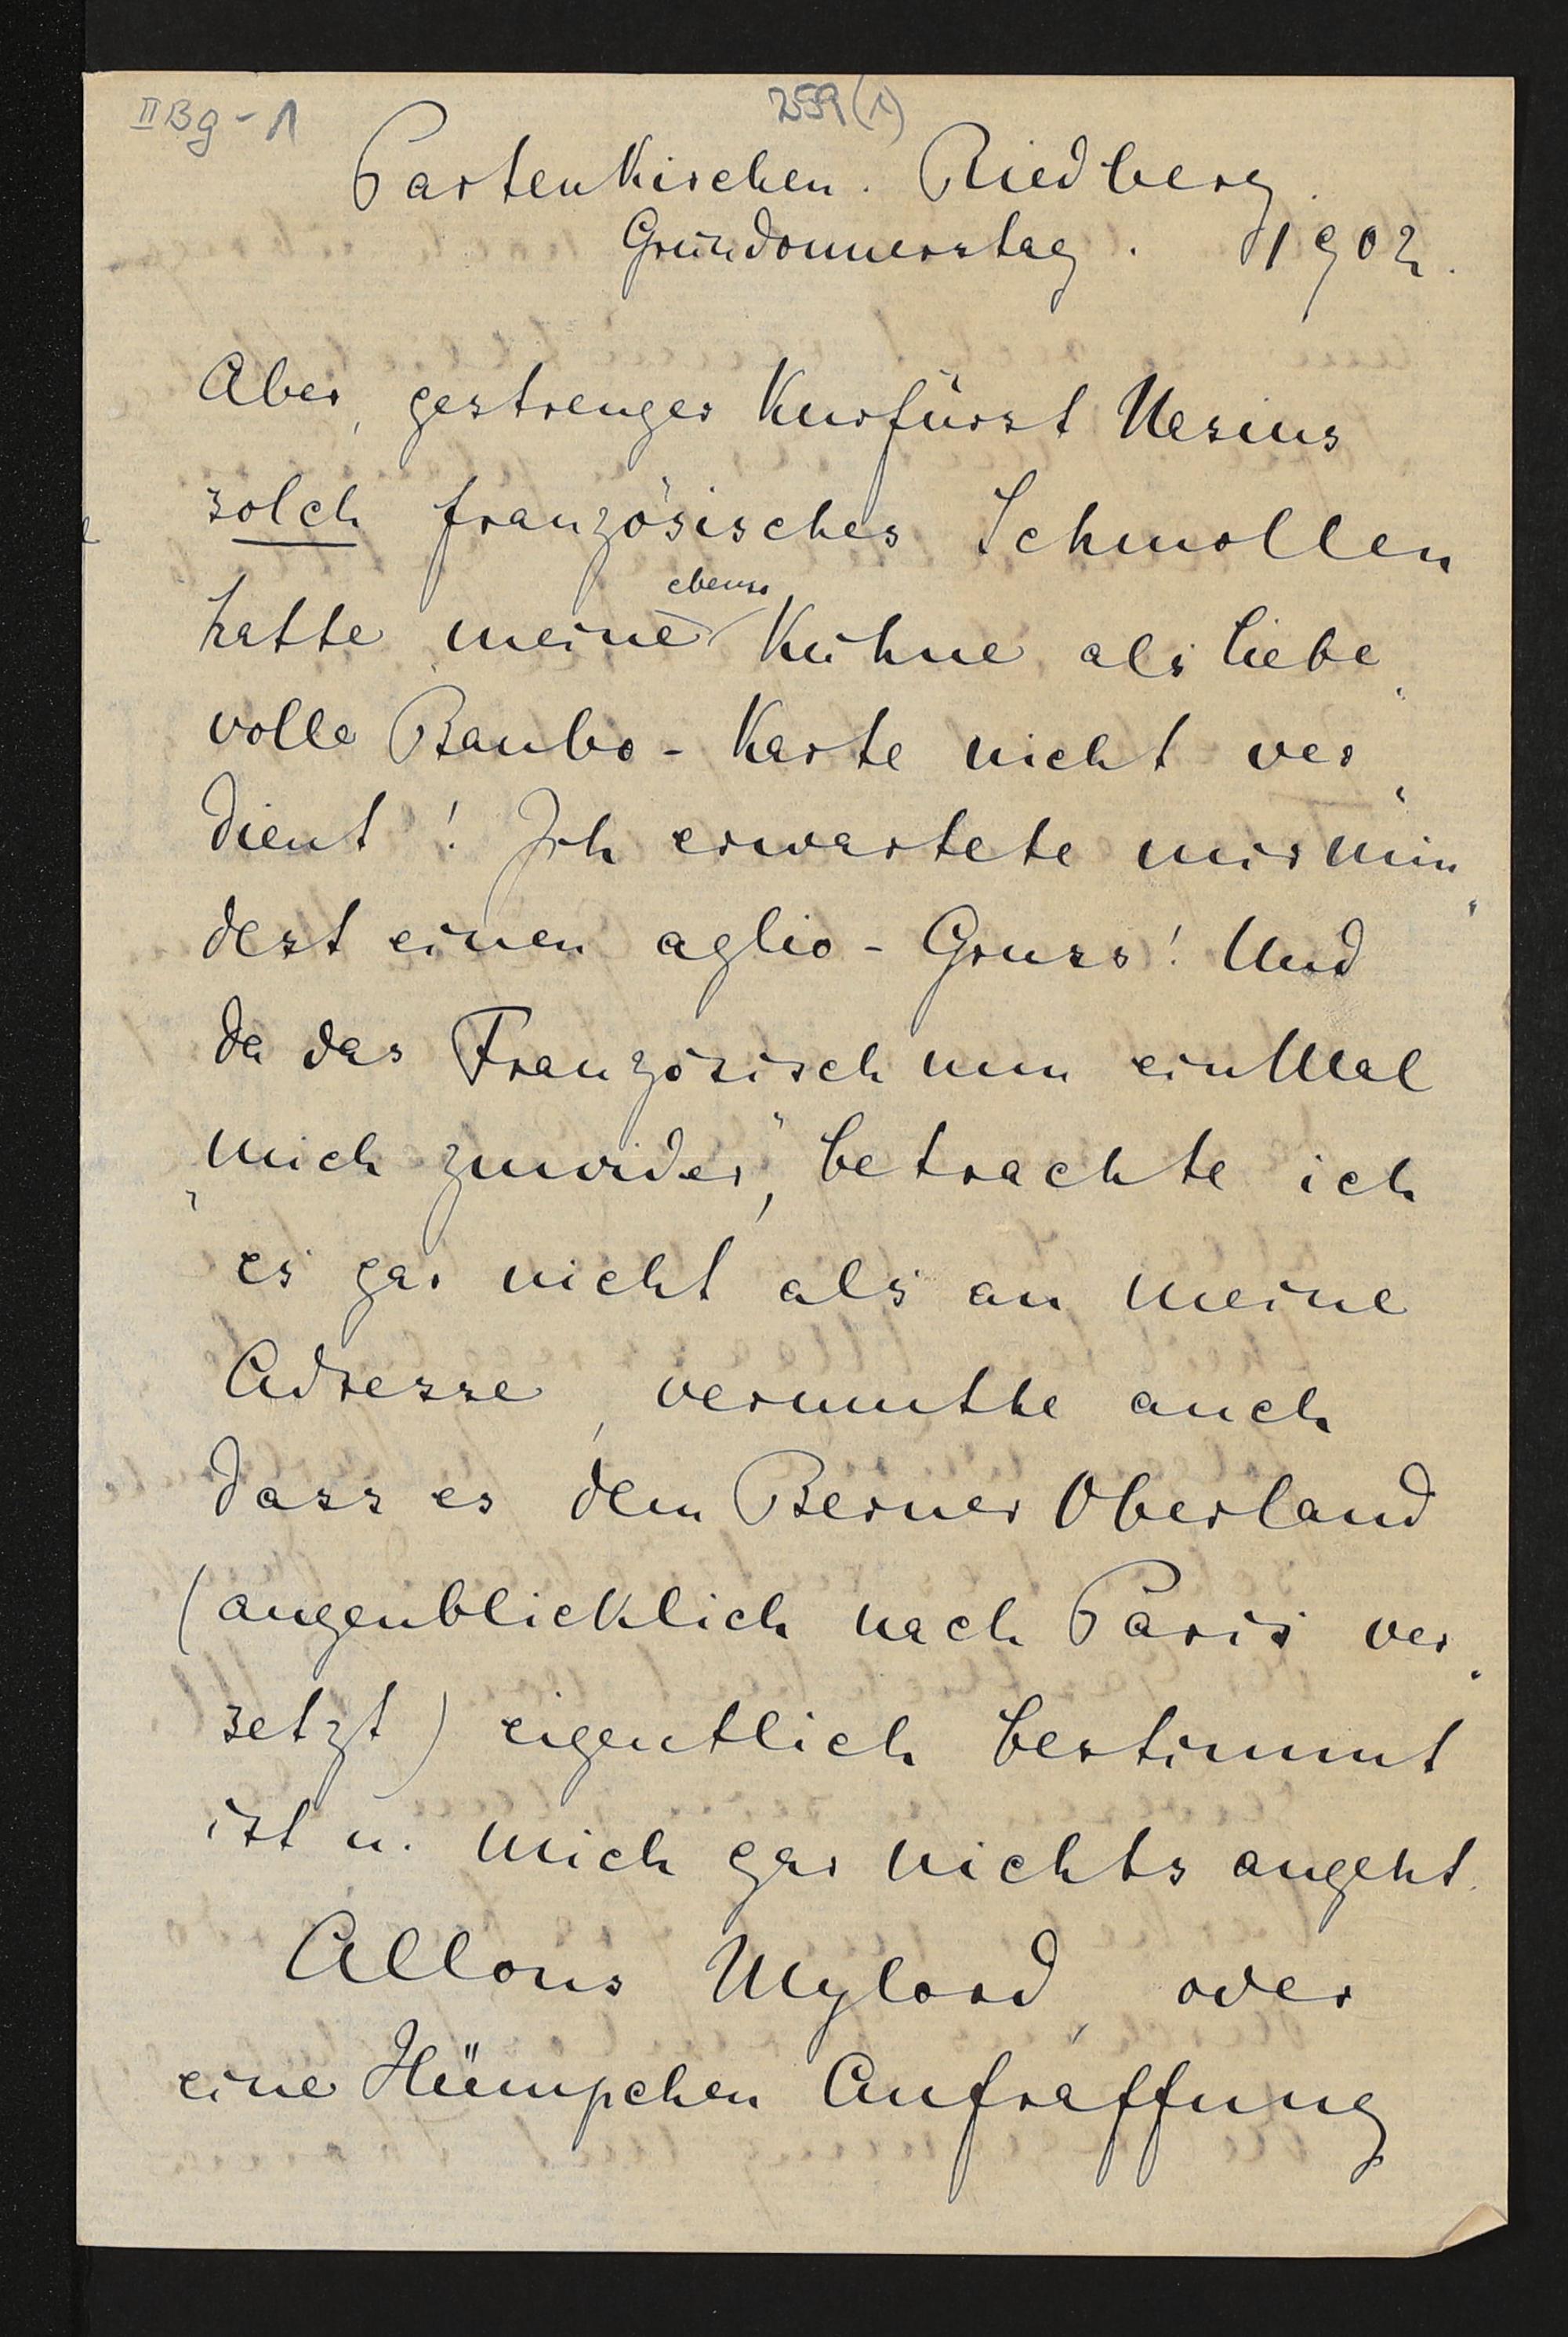 IIBg-1
259(1)
Partenkirchen. Riedberg.
Gründonnerstag. 1902.
Aber, gestrenger Kurfürst
solch französisches Schmollen
ebenso
hatte meine Kühne als liebe
volle Baubo-Karte nicht ver
dient! Ich erwartete mir min
dest einen aglio-Gruss! Und
da das Französisch nun ein Mal
„mich zuwider", betrachte ich
es gar nicht als an meine
Adresse, vermuthe auch
dass es dem Berner Oberland
(augenblicklich nach Paris ver
setzt) eigentlich bestimmt
ist u. mich gar nichts angeht.
Allons Mylord, oder
eine Hümpchen Aufraffung